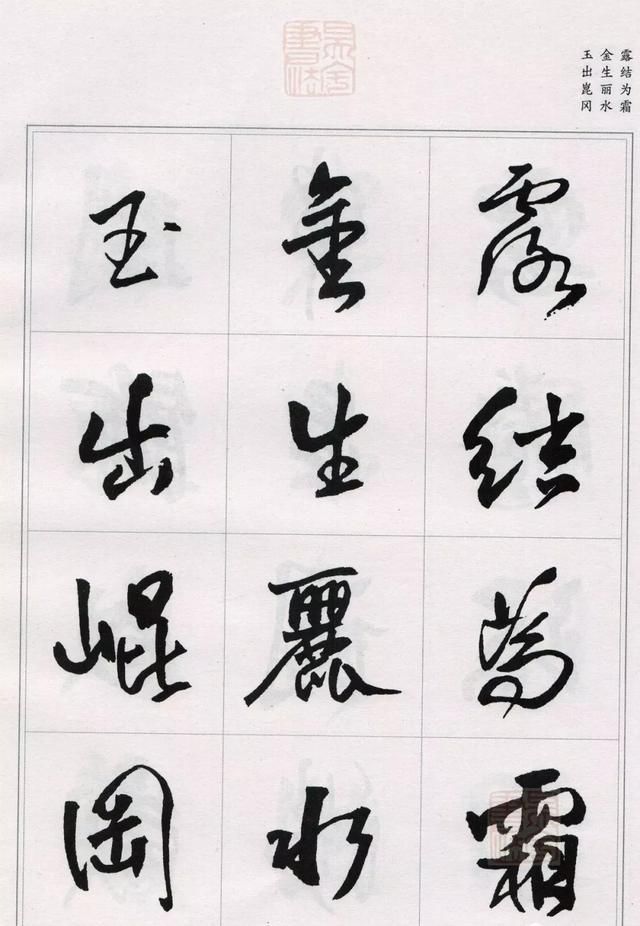 露结为霜
金生丽水
玉出崑冈
露結為霜
金生麗水
玉出崐岡